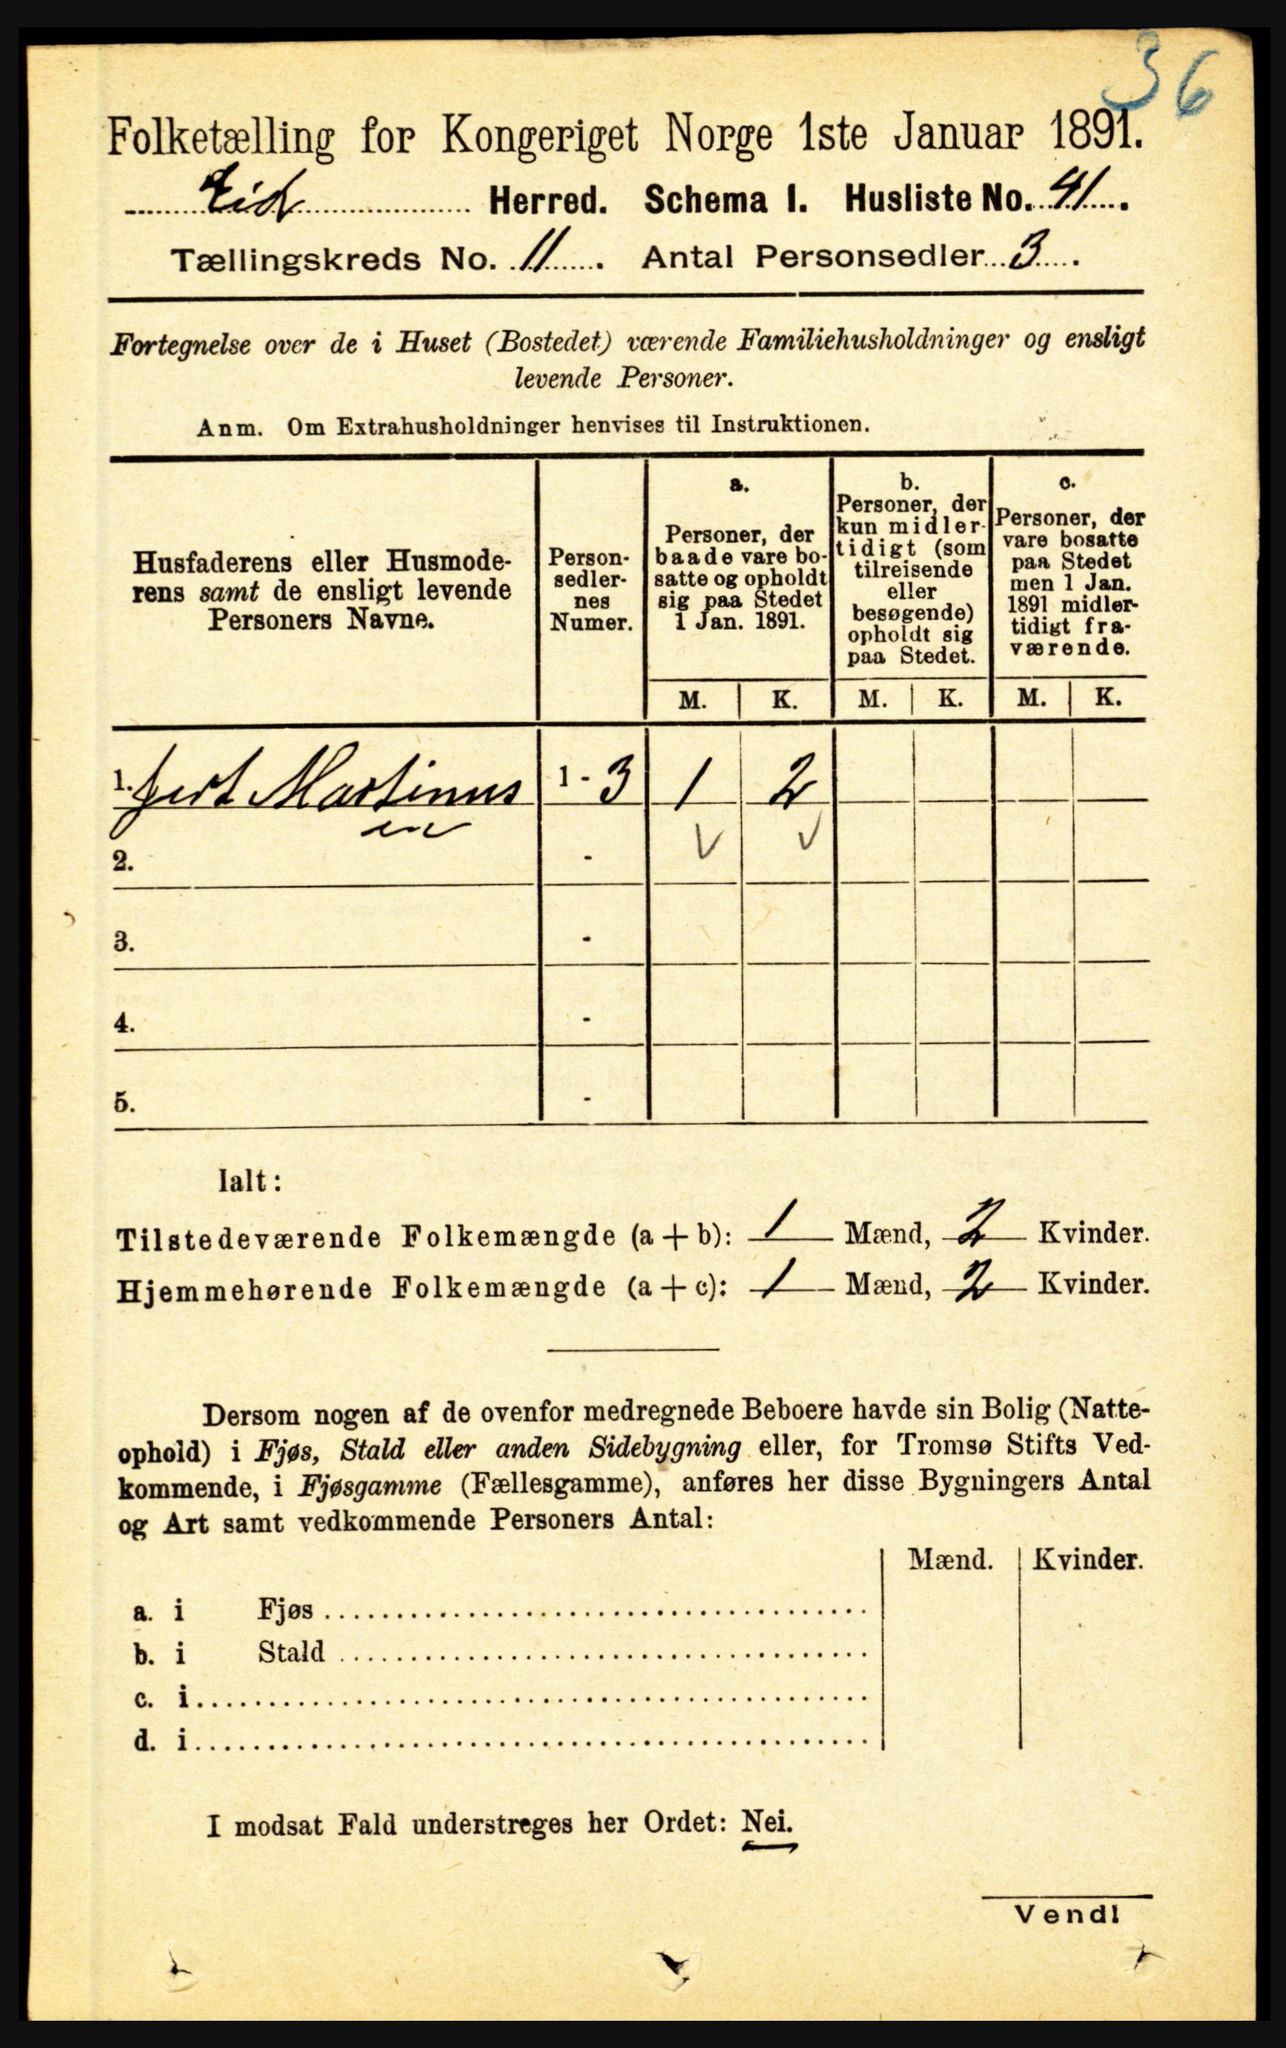 36
Folketælling for Kongeriget Norge 1ste Januar 1891.
Eid Herred. Schema I. Husliste No. 41.
Tællingskreds No. 11. Antal Personsedler 3.
Fortegnelse over de i Huset (Bostedet) værende Familiehusholdninger og ensligt
levende Personer.
Anm. Om Extrahusholdninger henvises til Instruktionen.
Husfaderens eller Husmode-
rens samt de ensligt levende
Personers Navne.
Person-
sedler-
nes
Numer.
a.
Personer, der
baade vare bo-
satte og opholdt
sig paa Stedet
1 Jan. 1891.
b.
Personer, der
kun midler-
tidigt (som
tilreisende
eller
besøgende)
opholdt sig
paa Stedet.
c.
Personer, der
vare bosatte
paa Stedet
men 1 Jan.
1891 midler-
tidigt fra-
værende.
M. K. M. K. M. K.
1. Martinus 1 - 3 1 2
en
2. -
3. -
4. -
5. -
Ialt:
Tilstedeværende Folkemængde (a + b): 1 Mænd, 2 Kvinder.
Hjemmehørende Folkemængde (a + c): 1 Mænd, 2 Kvinder.
Dersom nogen af de ovenfor medregnede Beboere havde sin Bolig (Natte-
ophold) i Fjøs, Stald eller anden Sidebygning eller, for Tromsø Stifts Ved-
kommende, i Fjøsgamme (Fællesgamme), anføres her disse Bygningers Antal
og Art samt vedkommende Personers Antal:
Mænd. Kvinder.
a. i Fjøs
b. i Stald
c. i
d. i
I modsat Fald understreges her Ordet: Nei.
Vend!